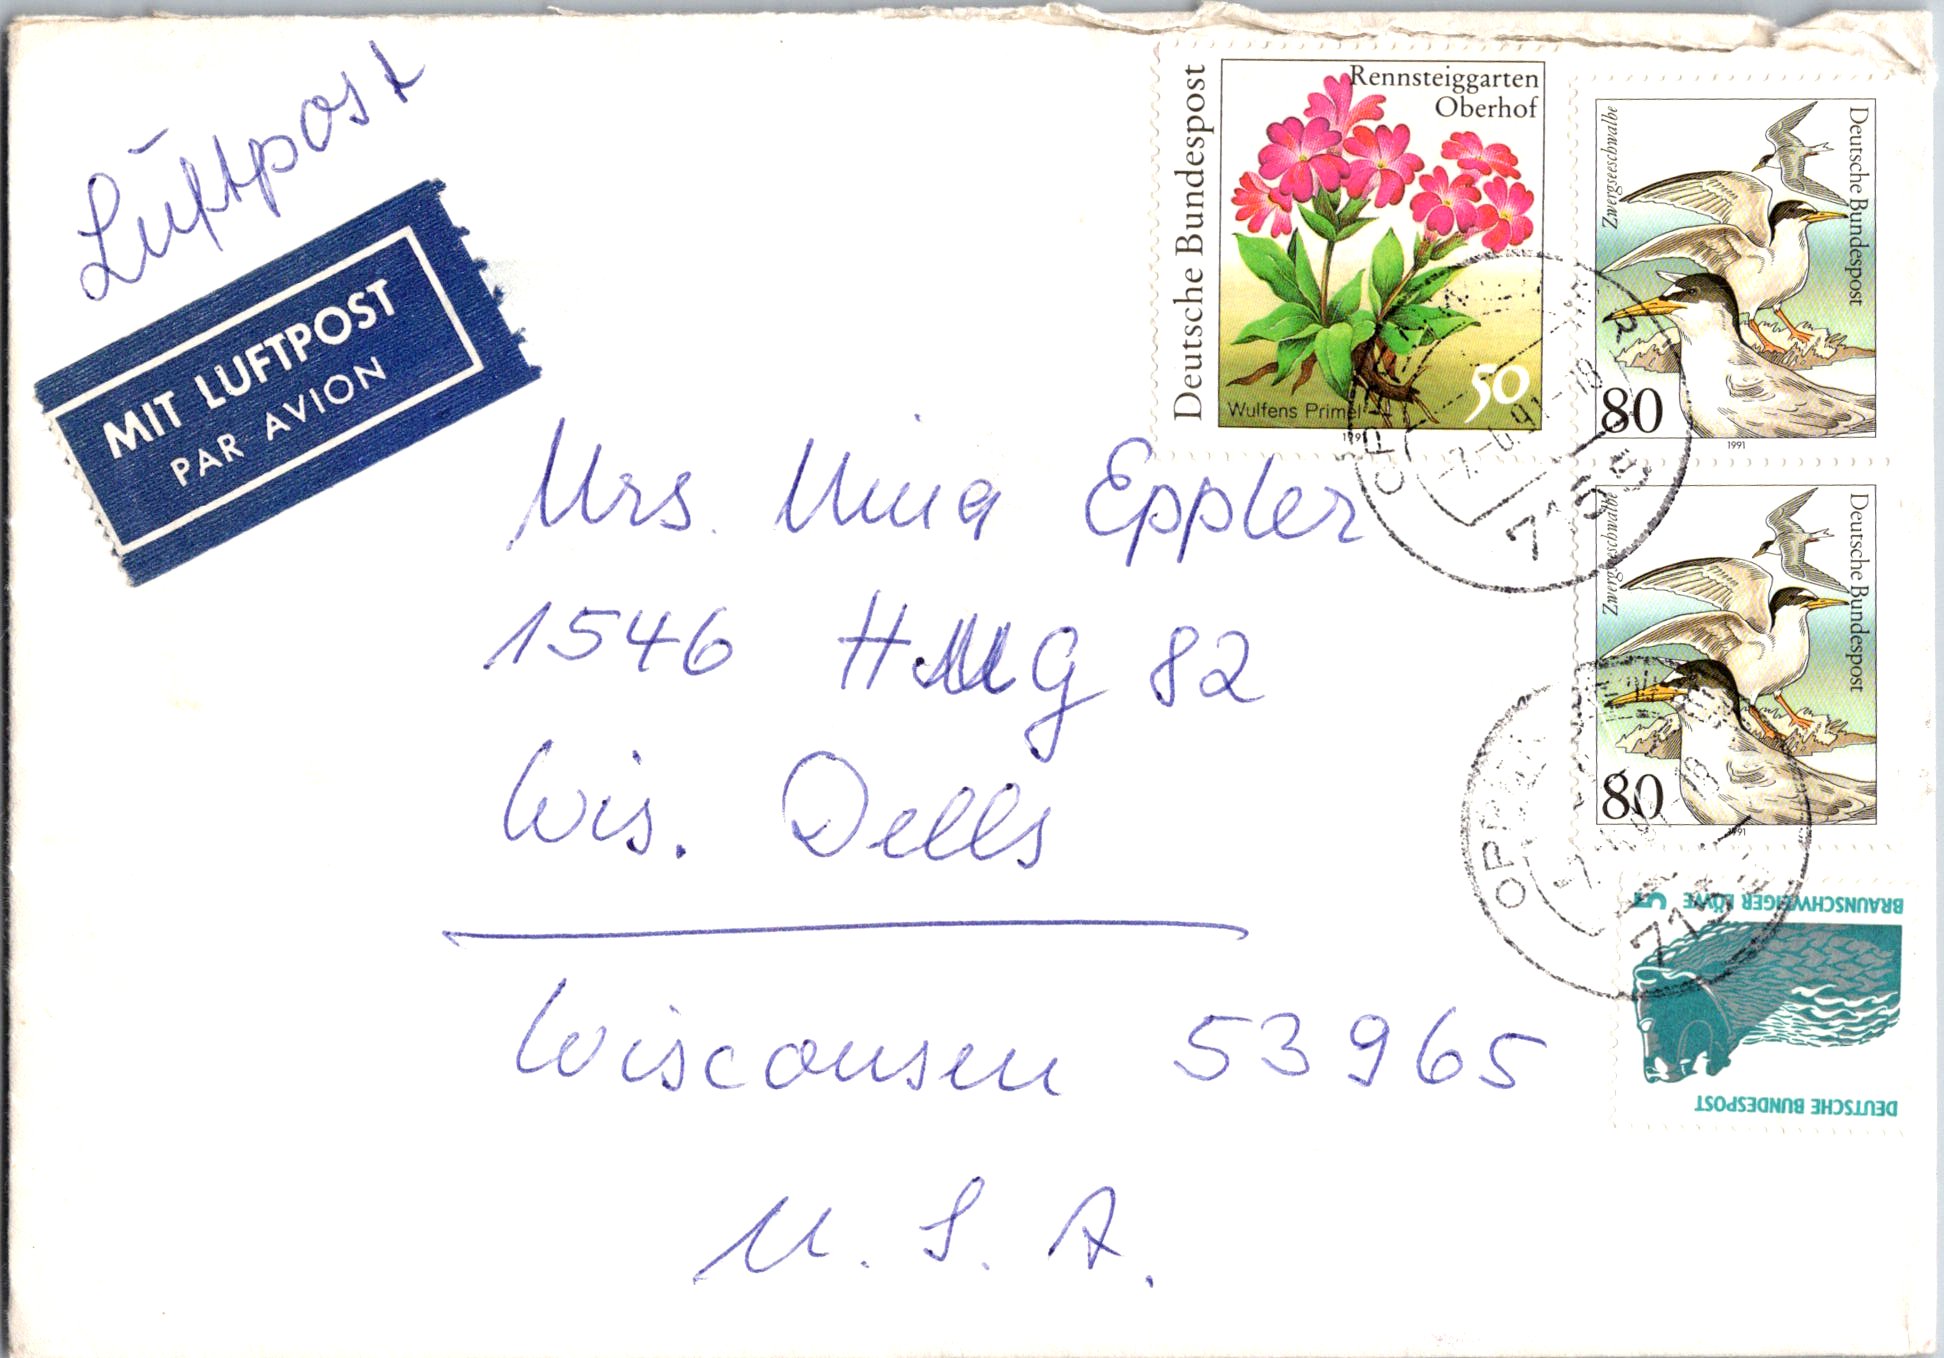 Luftpost
MIT LUFTPOST
PAR AVION
Deutsche Bundespost
Rennsteiggarten
Oberhof
Wulfens Primel
50
Zwergseeschwalbe
Deutsche Bundespost
80
1991
Zwergseeschwalbe
Deutsche Bundespost
80
1991
Mrs. Mina Eppler
1546 82
Wis. Dells
Wisconsen 53965
U. S. A.
BRAUNSCHWEIGER LÖWE 5
DEUTSCHE BUNDESPOST